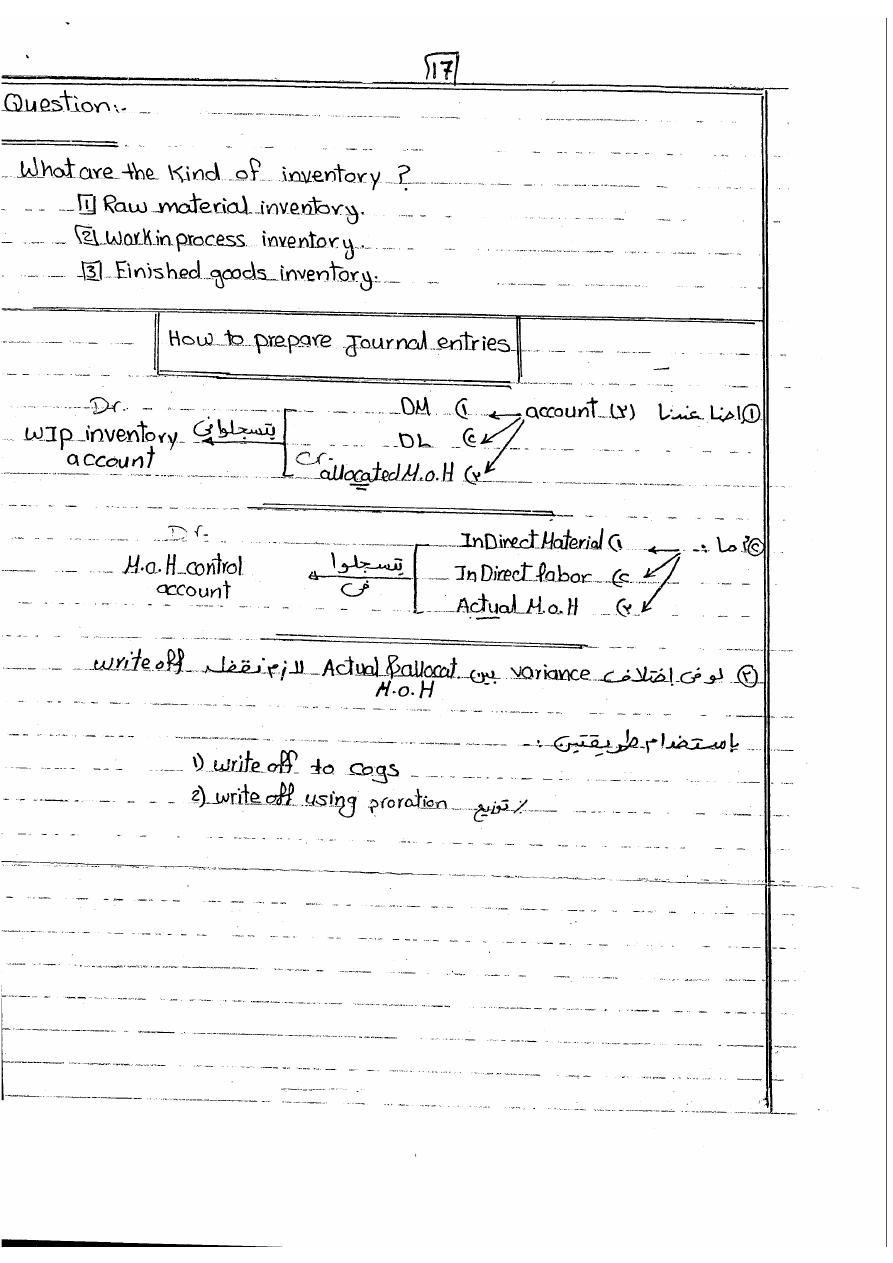 17
Question:-
What are the Kind of inventory ?
1 Raw material inventory.
2 Work in process inventory.
3 Finished goods inventory.
How to prepare Journal entries
① احنا عندنا (٣) account
١) DM
٢) DL
٣) allocated M.o.H
Cr.
يتسجلوا فى
Dr.
WIp inventory
account
② أما :-
١) InDirect Material
٢) InDirect labor
٣) Actual M.o.H
يتسجلوا
فى
Dr.
M.o.H control
account
③ لو فى إختلاف variance بين Actual & allocat لازم نقفل write off
M.o.H
بإستخدام طريقتين :-
1) write off to cogs
2) write off using proration توزيع %